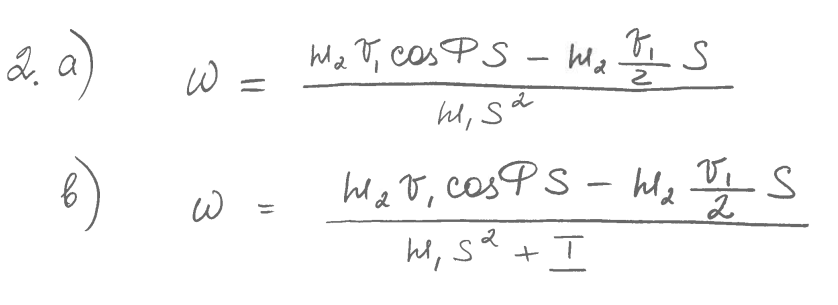 2. a) ω = (m₂ v₁ cos Φ S − m₂ (v₁/2) S) / (m₁ S²)
b) ω = (m₂ v₁ cos Φ S − m₂ (v₁/2) S) / (m₁ S² + I)